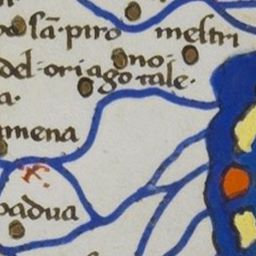 sā · piro mestri
no
del · oriago tale ·
a ·
mena
padua